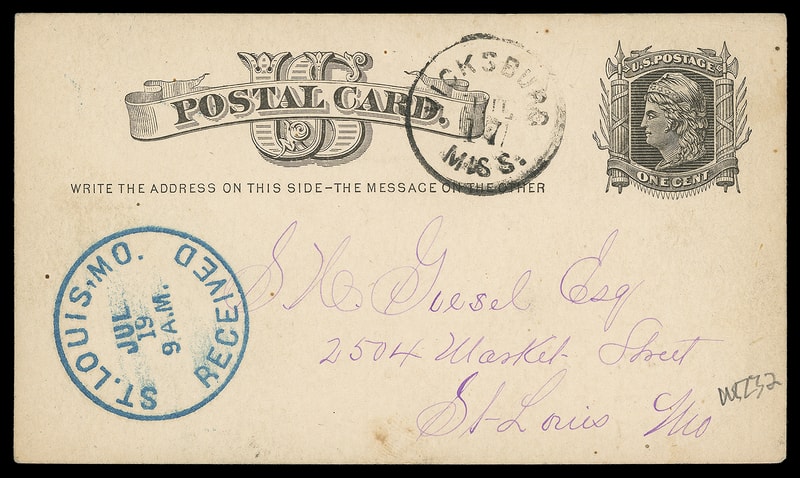 US
POSTAL CARD.
U.S. POSTAGE
ONE CENT
VICKSBURG
JUL
17
MISS.
WRITE THE ADDRESS ON THIS SIDE–THE MESSAGE ON THE OTHER
ST. LOUIS, MO. RECEIVED
JUL
19
9 A.M.
S. H. Giesel Esq
2504 Market Street
St Louis Mo